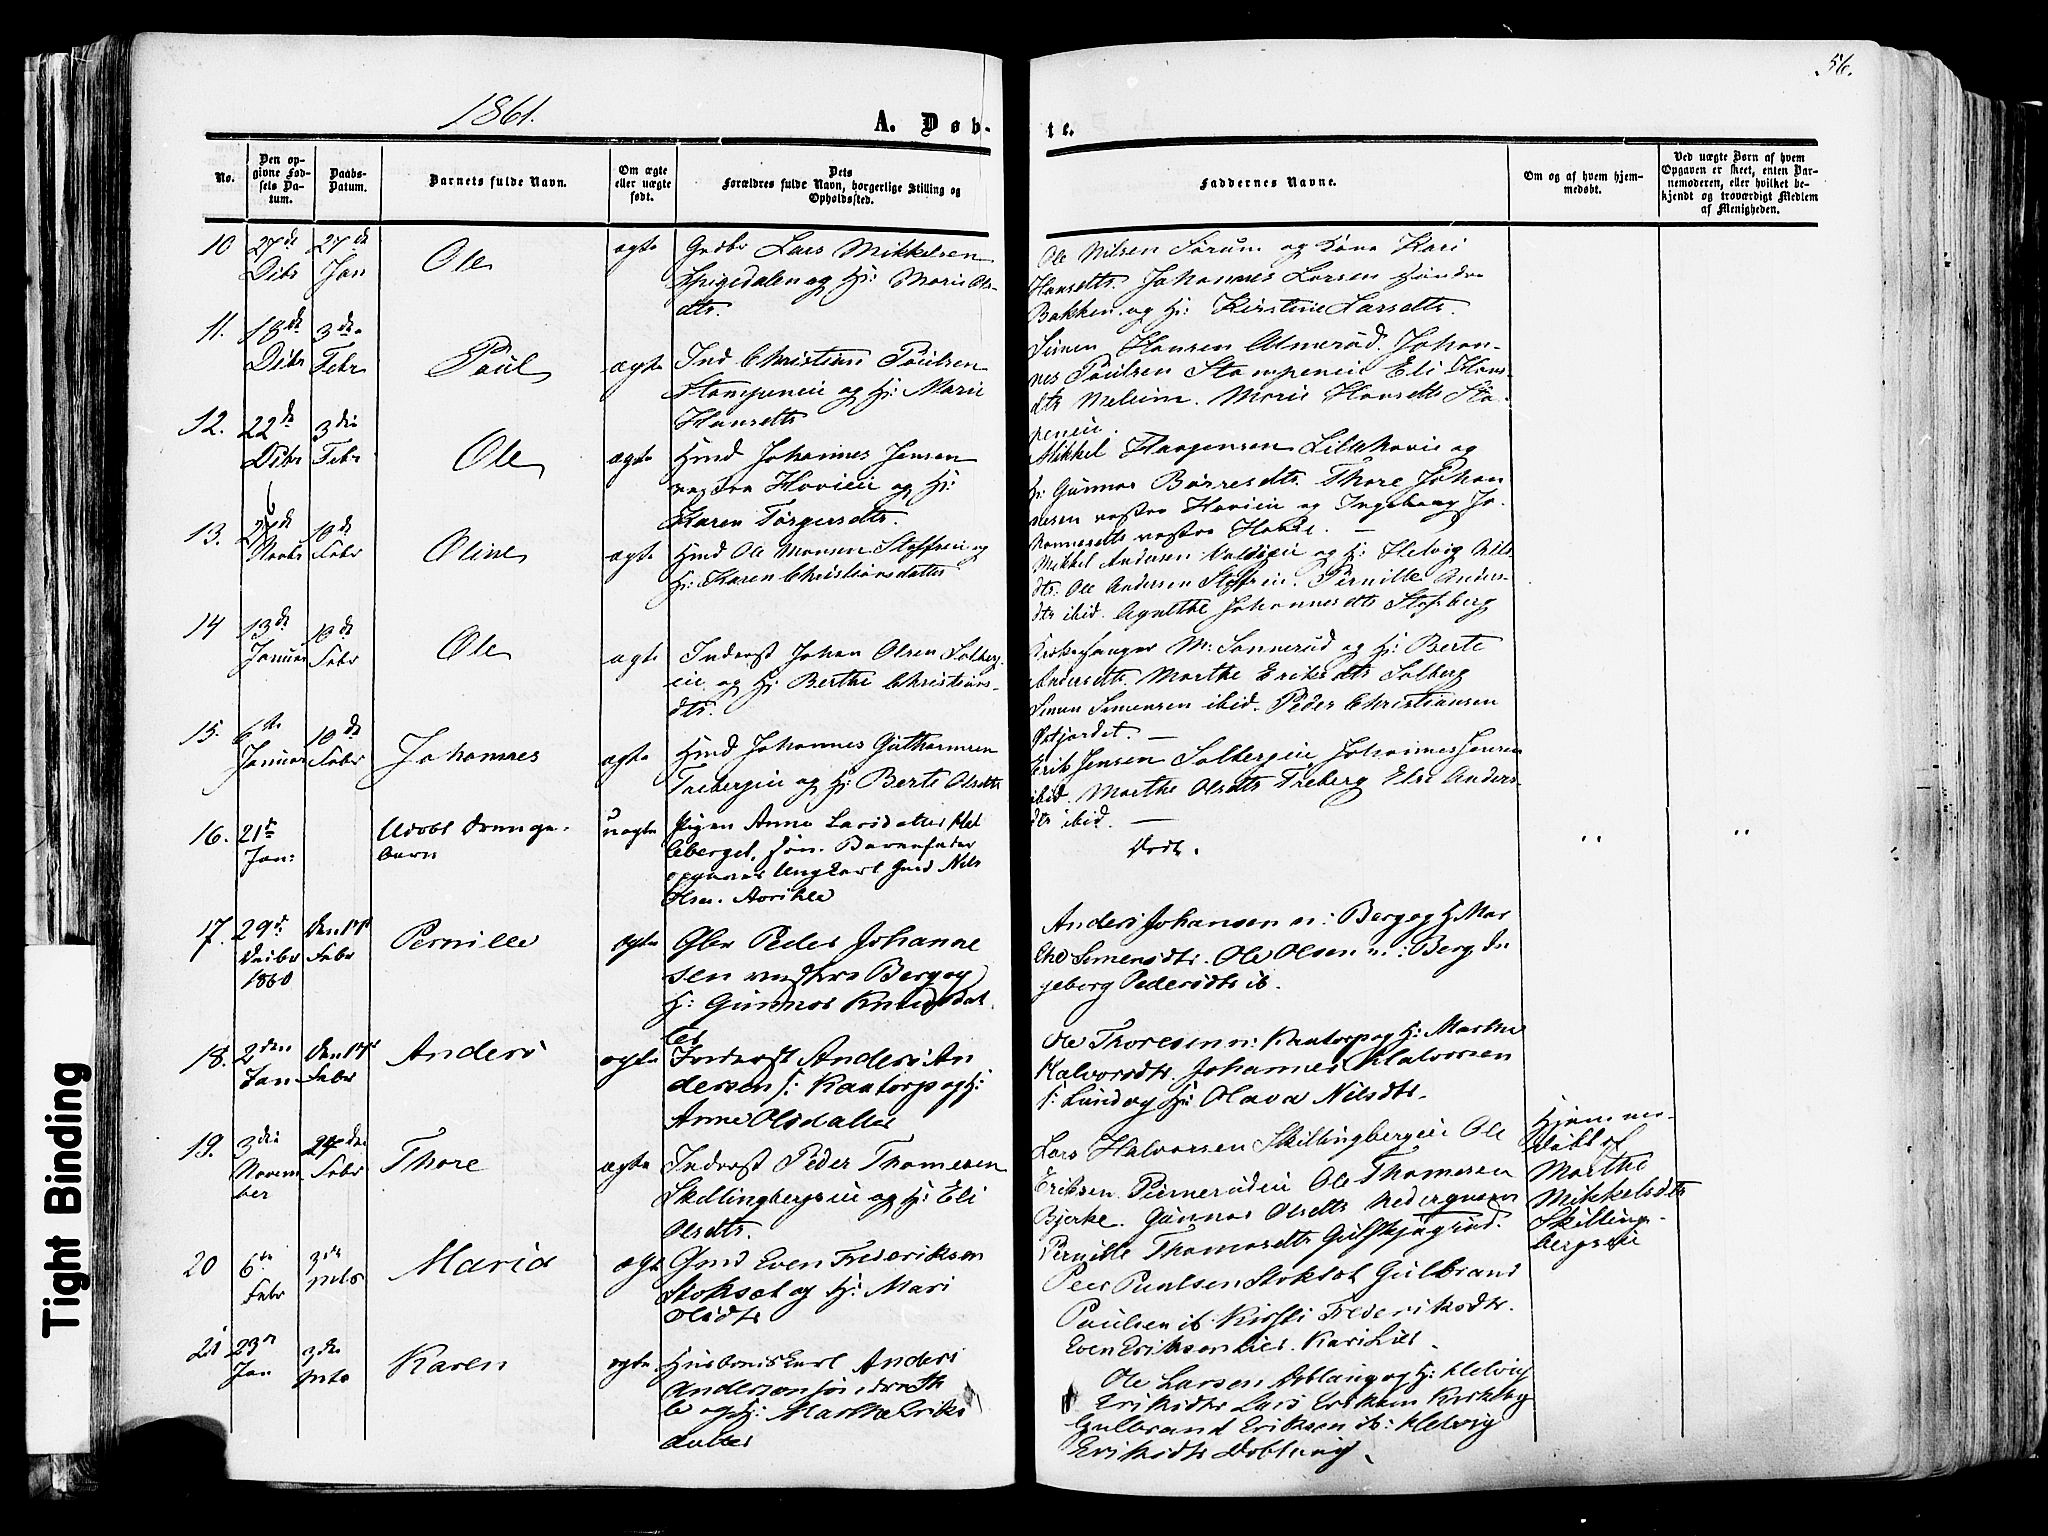 56.
1861.
A. Døb-
te.
No.
Den op-
givne Fød-
sels Da-
tum.
Daabs-
Datum.
Barnets fulde Navn.
Om ægte
eller uægte
født.
Dets
Forældres fulde Navn, borgerlige Stilling og
Opholdssted.
Faddernes Navne.
Om og af hvem hjem-
medøbt.
Ved uægte Børn af hvem
Opgaven er skeet, enten Bar-
nemoderen, eller hvilket be-
kjendt og troværdigt Medlem
af Menigheden.
10
27de
Dcbr
27de
Jan
Ole
ægte
Gndbr Lars Mikkelsen
og Hj: Marie Ols-
dtr.
Ole Nilsen Sørum og Kone Kari
Hansdtr. Johannes Larsen
Bakken og Hj: Kirstine Larsdtr.
11.
18de
Dcbr
3de
Febr
Paul
ægte
Ind Christian Paulsen
Stampeneie og Hj: Marie
Hansdtr
Simen Hansen Almerud. Johan-
nes Paulsen Stampeneie Eli Hans-
dtr Melum. Marie Hansdtr Sta-
peneie.
12.
22de
Dcbr
3die
Febr
Ole
ægte
Hmd Johannes Jensen
vestre Hovieie og Hj:
Karen Torgersdtr.
Mikkel Haagensen Lillehovie og
Hj: Gunnor Børresdtr. Thore Johan
nesen vestre Hovieie og Ingeborg Jo-
hannesdtr vestre
13.
Novbr
10de
Febr
Oline
ægte
Hmd Ole Monsen og
Hj: Karen Christiansdatter
Mikkel Andersen og Hj: Helvig Nils
dtr. Ole Andersen Pernille Anders-
dtr ibid. Agnethe Johannesdtr
14
13de
Januar
10de
Febr
Ole
ægte
Inderst Johan Olsen Solberg-
eie og Hj: Berthe Christians-
dtr.
Kirkesanger M. Sønnerud og Hj: Berte
Andersdtr. Marthe Eriksdtr Solberg
Simen Simensen ibid. Peder Christiansen
15.
6te
Januar
10de
Febr
Johannes
ægte
Hmd Johannes Guthormsen
Trebergeie og Hj: Berte Olsdtr
Erik Jensen Solbergeie Johannes Jensen
ibid. Marthe Olsdtr Treberg Else Anders-
dtr ibid.
16.
21de
Jan:
Udøbt Drenge-
barn
uægte
Pigen Anne Larsdatter
leberget, søn. Barnefader
opgives Ungkarl Gmd Nils
Olsen
Død.
" "
17.
29de
Decbr
1860
Den 17de
Febr
Pernille
ægte
Gbr Peder Johanne
sen vestre Berg og
Hj: Gunnor Knudsdat-
ter
Anders Johansen n: Berg og Hj: Mar
the Simensdtr. Ole Olsen n: Berg In
geborg Pedersdtr ib.
18.
2den
Jan
Den 17de
Febr
Anders
ægte
Inderst Anders An
dersen s: Kantorp og Hj:
Anne Olsdatter
Ole Thoresen n: Kantorp og Hj: Marthe
Halvorsdtr. Johannes Halvorsen
s: Lund og Hj: Olava Nilsdtr.
19.
3die
Novem
ber
24de
Febr
Thore
ægte
Inderst Peder Thomesen
Skillingbergseie og Hj: Eli
Olsdtr.
Lars Halvorsen Skillingbergeie Ole
Eriksen Ole Thomesen
Bjerke. Gunnor Olsdtr
Pernille Thomasdtr
Hjemme-
døbt af
Marthe
Mikkelsdtr
Skilling-
bergseie
20
6te
Febr
3de
Marts
Maria
ægte
Gmd Even Frederiksen
Stoksæt og Hj: Mari
Olsdtr
Peer Paulsen Stoksæt Gulbrand
Paulsen ib Kirsti Frederiksdtr.
Even Eriksen Lier. Kari Lier.
21
23de
Jan
3die
Marts
Karen
ægte
Husbondkarl Anders
Andersen søndre
og Hj: Marthe Eriks
datter
Ole Larsen og Hj: Helvig
Eriksdtr Lars Eriksen Kirkeby
Gulbrand Eriksen ib: Helvig
Eriksdtr
Tight Binding